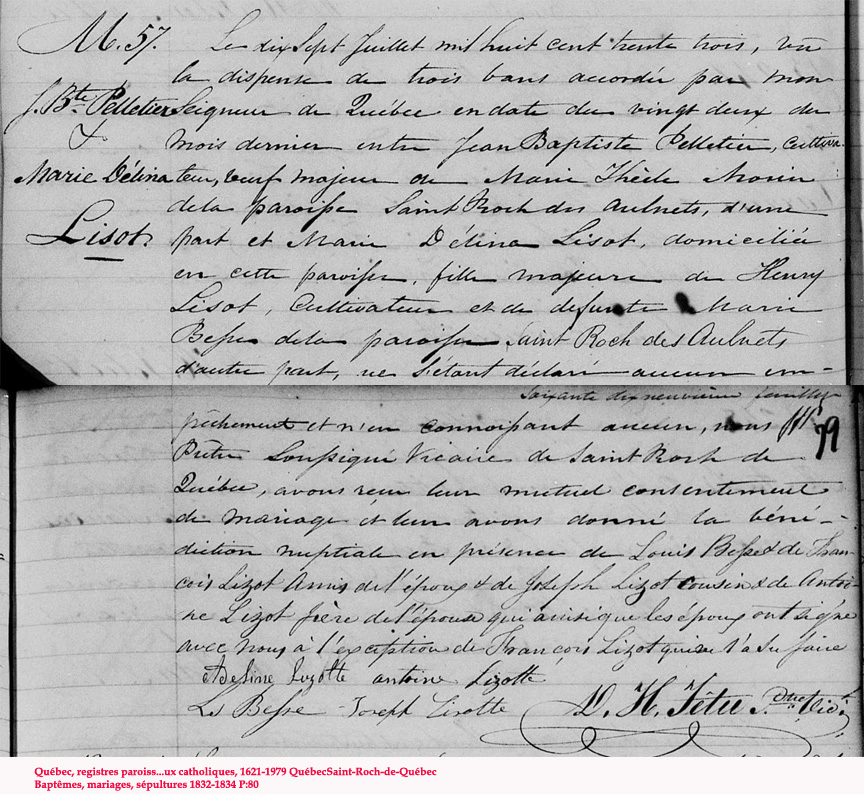 M. 57.
J. Bte Pelletier
&
Marie Délina
Lisot.
Le dix Sept Juillet mil huit cent trente trois, vû
la dispense de trois bans accordée par mon
Seigneur de Québec en date du vingt deux du
mois dernier entre Jean Baptiste Pelletier, Cultiva-
teur, veuf majeur de Marie Thècle Morin
de la paroisse Saint Roch des Aulnets, d'une
part et Marie Délina Lisot, domiciliée
en cette paroisse, fille majeure de Henry
Lisot, Cultivateur et de defunte Marie
Besse de la paroisse Saint Roch des Aulnets
d'autre part, ne s'étant déclaré aucun em-
Soixante dix neuvième feuillet
pêchement et n'en connoissant aucun, nous
79
Prêtre Soussigné Vicaire de Saint Roch de
Québec, avons reçu leur mutuel consentement
de mariage et leur avons donné la béné-
diction nuptiale en présence de Louis Besse & de Fran-
çois Lizot Amis de l'époux & de Joseph Lizot cousin & de Antoi-
ne Lizot frère de l'épouse qui ainsi que les époux ont signé
avec nous à l'exception de François Lizot qui ne l'a su faire
Adeline Lizotte antoine Lizotte
Ls Besse Joseph Lizotte
D. H. Têtu Ptre Vic.
Québec, registres paroiss...ux catholiques, 1621-1979 QuébecSaint-Roch-de-Québec
Baptêmes, mariages, sépultures 1832-1834 P:80